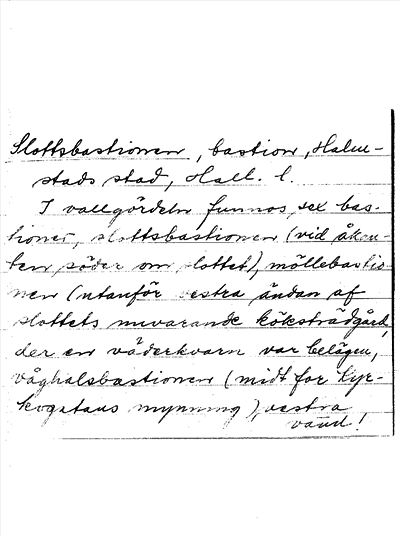 Slottsbastionen, bastion, Halm-
stads stad, Hall. l.
I vallgördeln funnos sex bas-
tioner, slottsbastionen (vid åkan-
ten söder om slottet), möllebastio-
nen (utanför vestra ändan af
slottets nuvarande köksträdgård,
der en väderkvarn var belägen,
våghalsbastionen (midt for Kyr-
kogatans mynning), vestra
vänd!